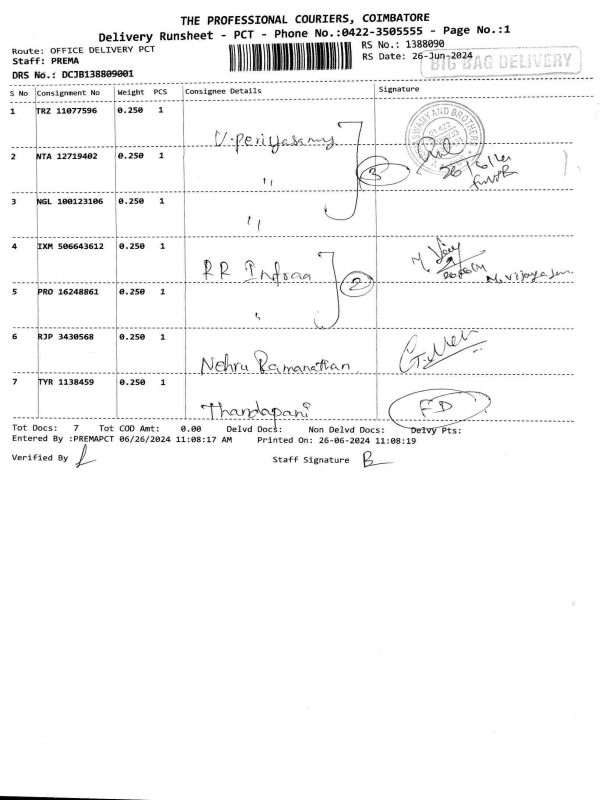 THE PROFESSIONAL COURIERS, COIMBATORE
Delivery Runsheet - PCT - Phone No.:0422-3505555 - Page No.:1
Route: OFFICE DELIVERY PCT
RS No.: 1388090
Staff: PREMA
RS Date: 26-Jun-2024
BIG BAG DELIVERY
DRS No.: DCJB138809001
S No Consignment No Weight PCS Consignee Details Signature
1 TRZ 11077596 0.250 1
V. Periyasamy
2 NTA 12719402 0.250 1
" 3
3 NGL 100123106 0.250 1
"
4 IXM 506643612 0.250 1
RR Infraa 2
5 PRO 16248861 0.250 1
"
6 RJP 3430568 0.250 1
Nehru Ramanathan
7 TYR 1138459 0.250 1
Thandapani FD
Tot Docs: 7 Tot COD Amt: 0.00 Delvd Docs: Non Delvd Docs: Delvy Pts:
Entered By :PREMAPCT 06/26/2024 11:08:17 AM Printed On: 26-06-2024 11:08:19
Verified By
Staff Signature